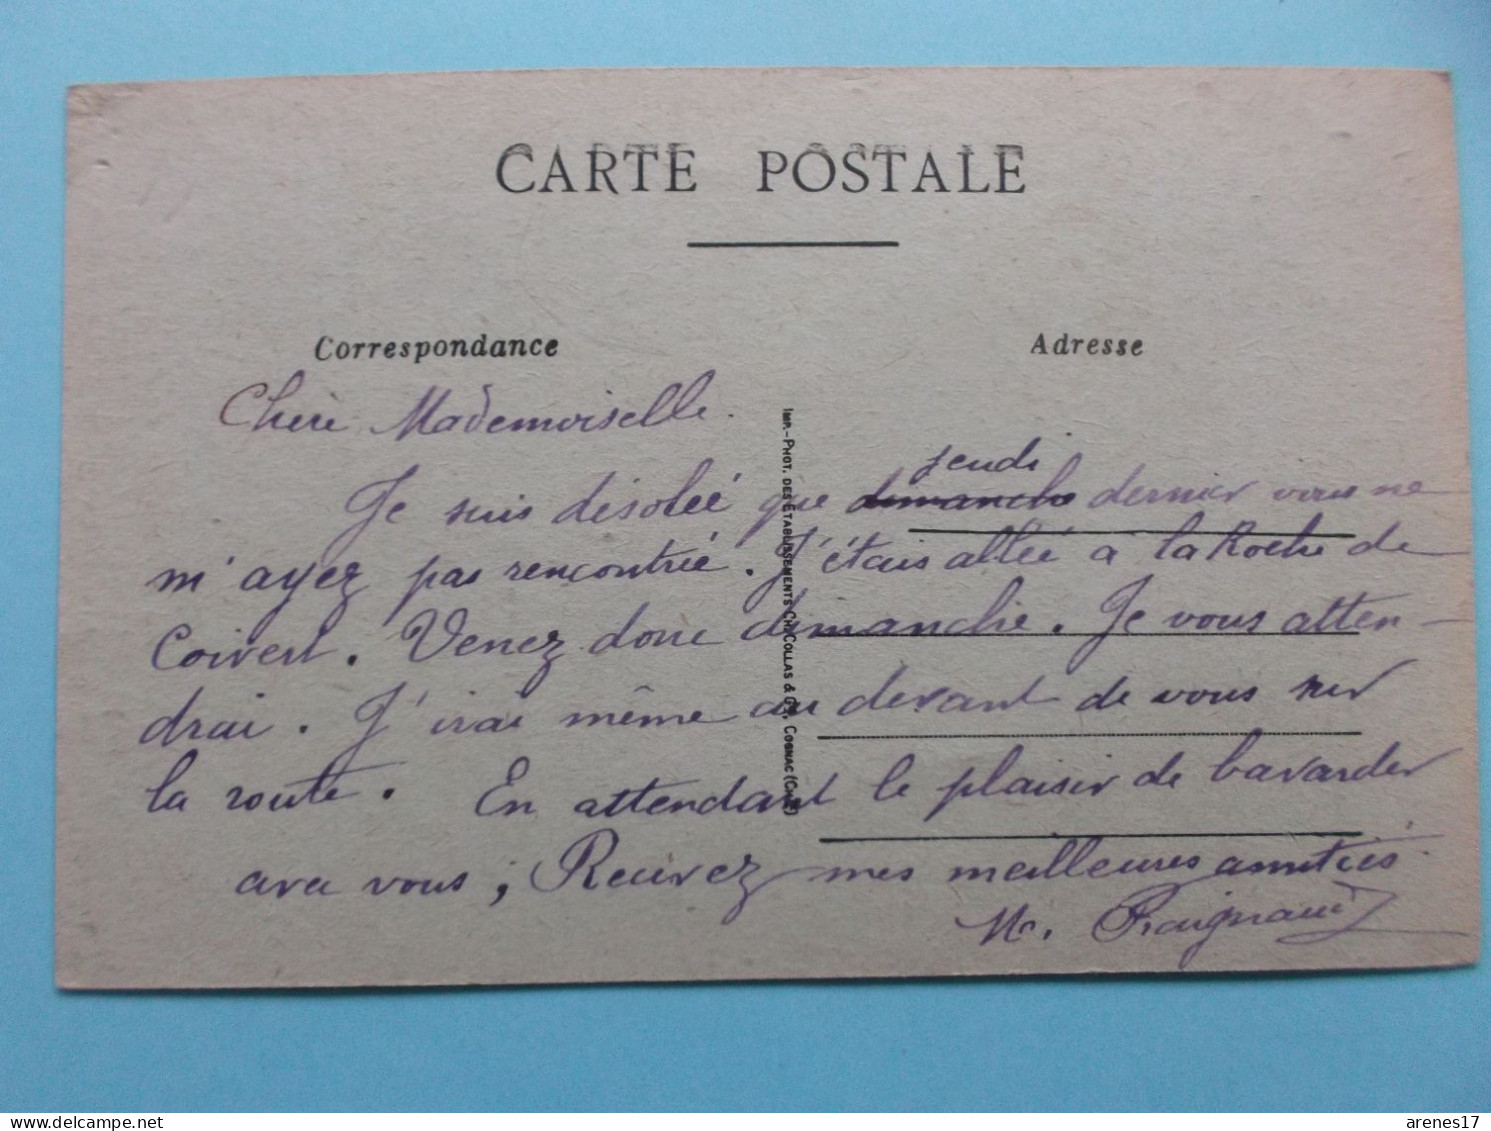 CARTE POSTALE
Correspondance
Adresse
Chère Mademoiselle.
jeudi
Je suis désolée que dimanche dernier vous ne
m'ayez pas rencontrée. J'étais allée à la Roche de
Coivert. Venez donc dimanche. Je vous atten-
drai. J'irai même au devant de vous sur
la route. En attendant le plaisir de bavarder
avec vous, Recevez mes meilleures amitiés.
IMP.-PHOT. DES ETABLISSEMENTS CH. COLLAS & Cie, COGNAC (Chte)
arenes17